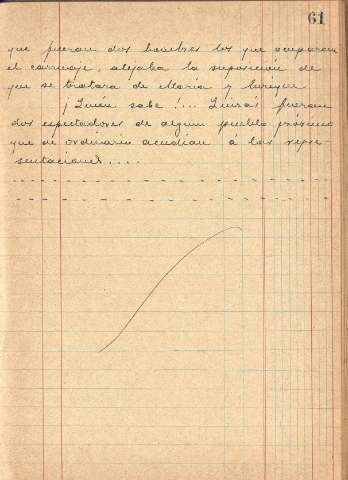 61
que fueran dos hombres los que ocuparan
el carruaje, alejaba la suposición de
que se tratara de Maria y Enrique
¡Quien sabe!... Quizás fueran
dos espectadores de algun pueblo próximo
que de ordinario acudian á las repre-
sentaciones....